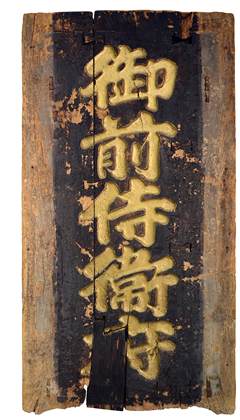 御前侍衛